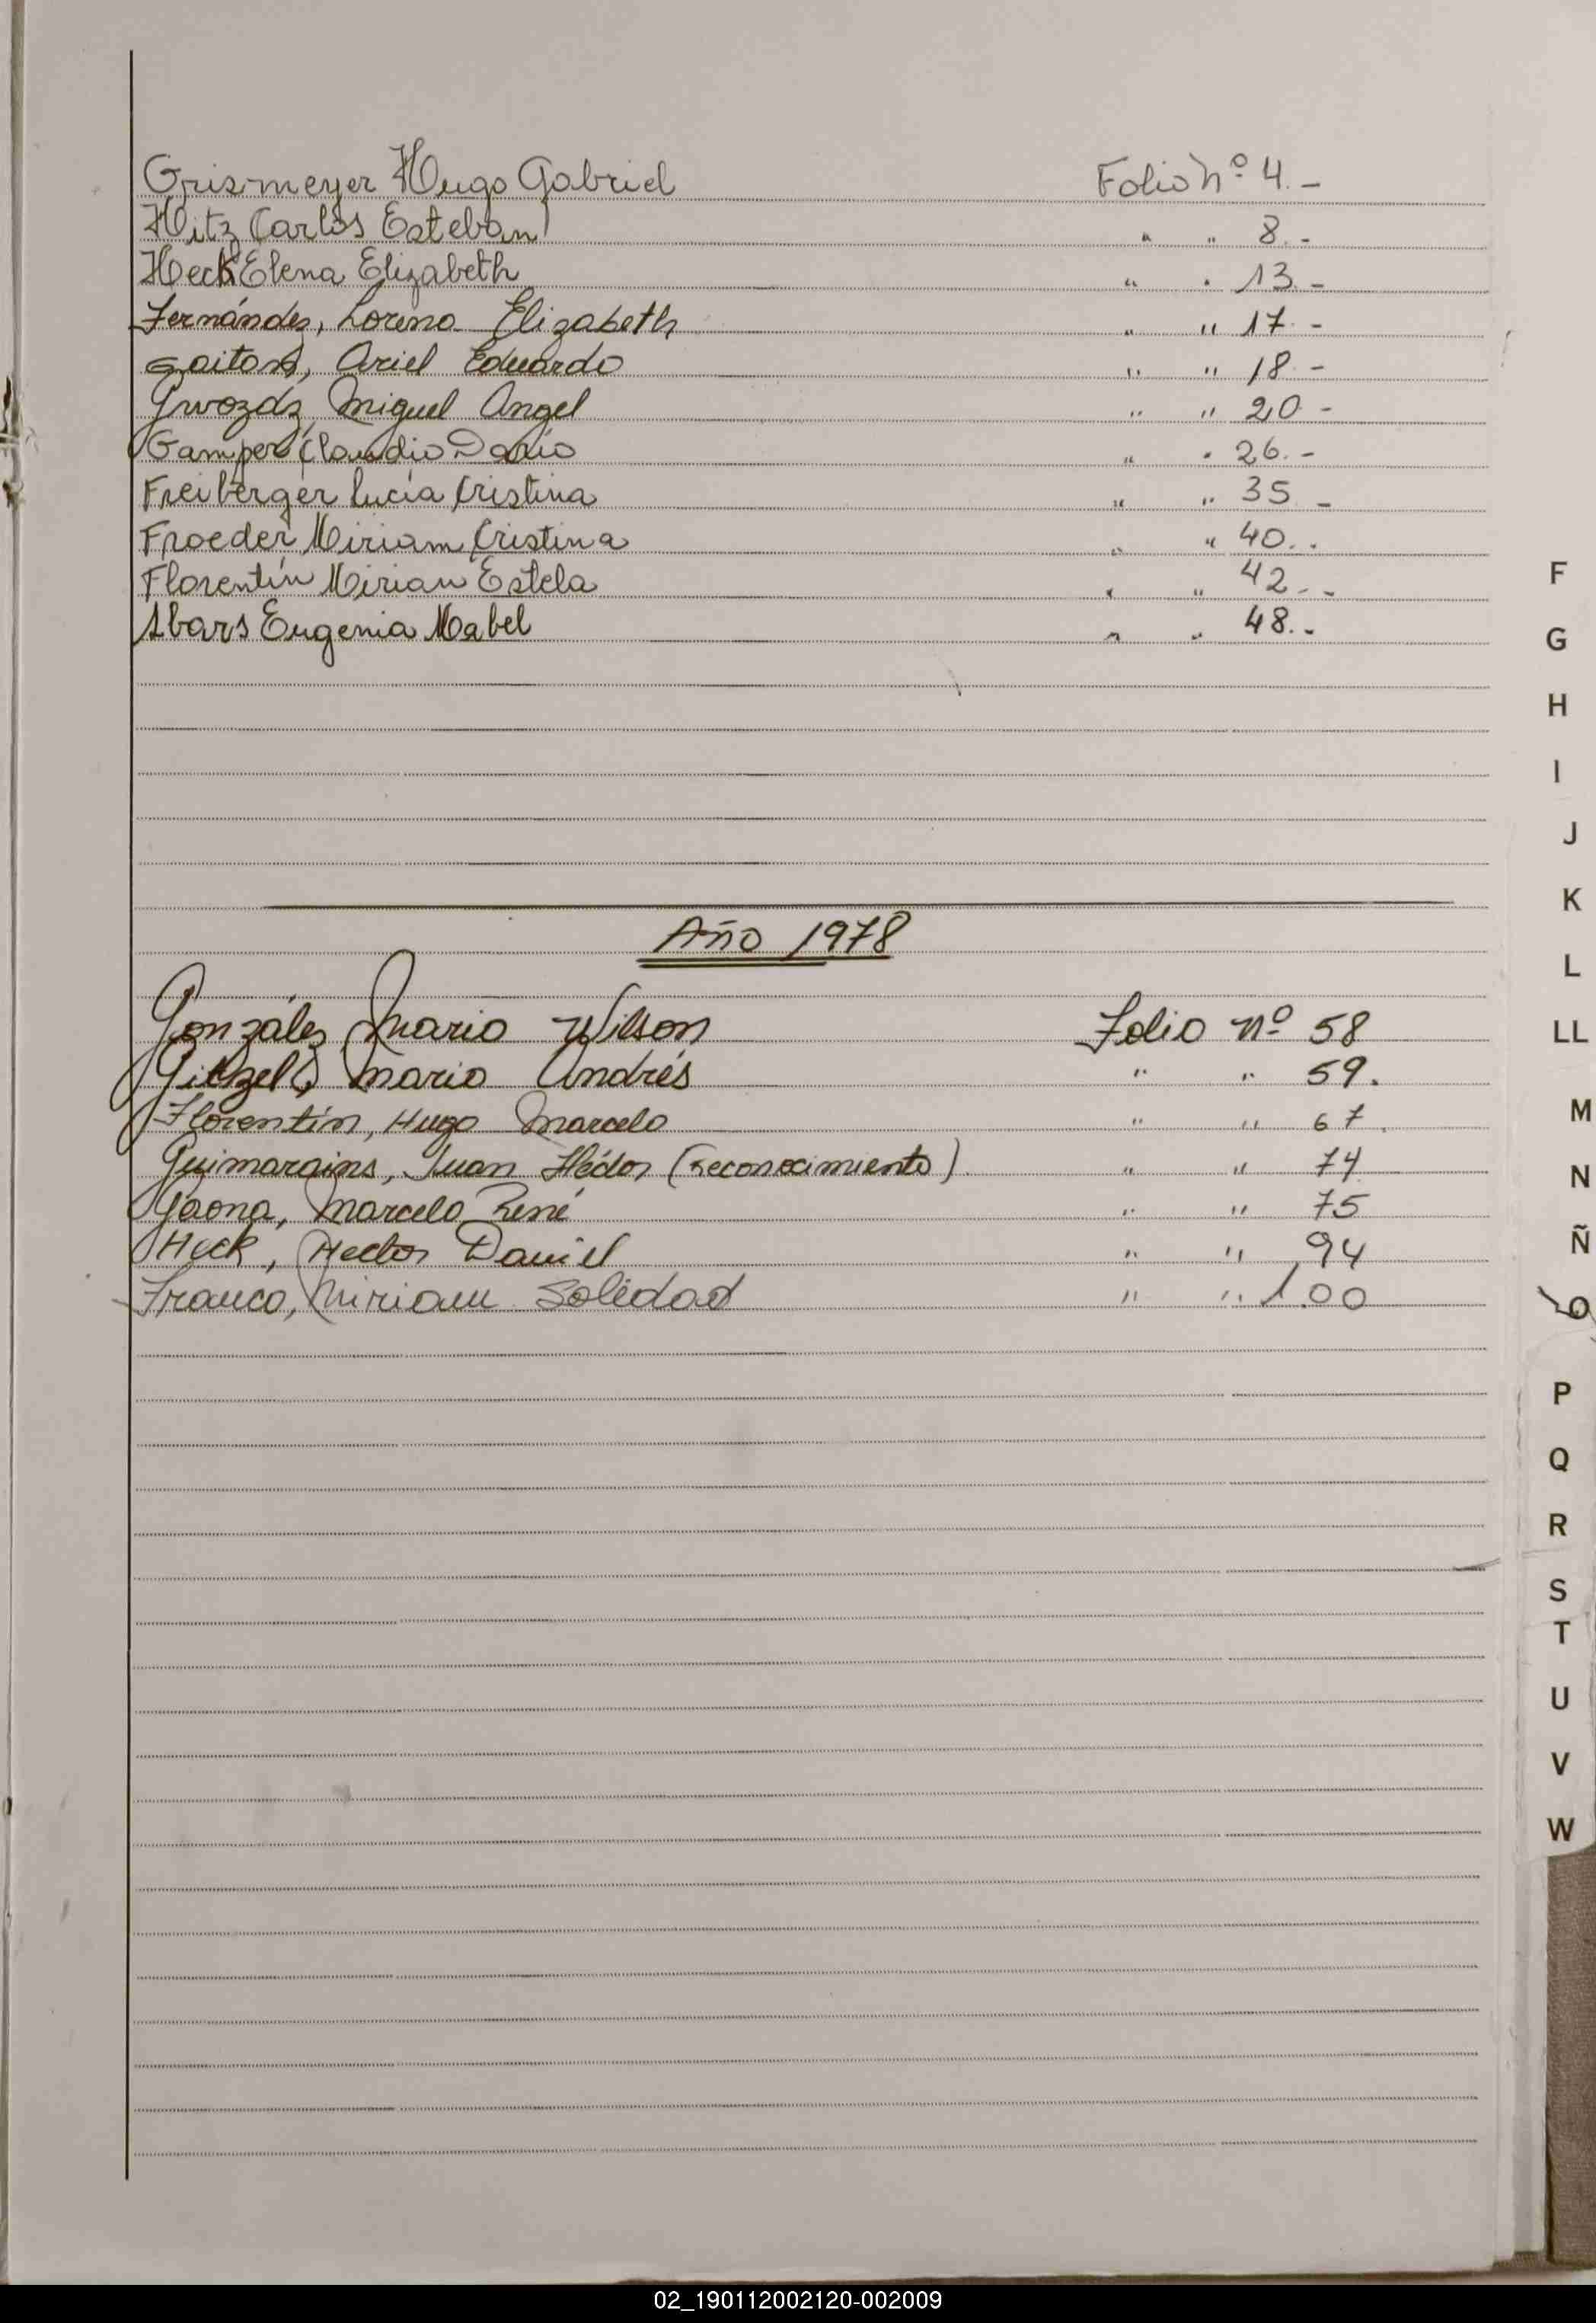 Grismeyer Hugo Gabriel Folio Nº 4.-
Hitz Carlos Esteban " " 8.-
Heck Elena Elizabeth " " 13.-
Fernández, Lorena Elizabeth " " 17.-
Gaitan, Ariel Eduardo " " 18.-
Gwozdz, Miguel Angel " " 20-
Gamper Claudio Dario " " 26.-
Freiberger Lucía Cristina " " 35-
Froeder Miriam Cristina " " 40..
Florentín Mirian Estela " " 42--
Ibars Eugenia Mabel " " 48.-
Año 1978
González Mario Wilson Folio Nº 58
Mario Andrés " " 59.
Florentín, Hugo Marcelo " " 67.
Guimarains, Juan Héctor (reconocimiento) " " 74
Gaona, Marcelo René " " 75
Heck, Hector Daniel " " 94
Franco, Miriam Soledad " " 100
F
G
H
I
J
K
L
LL
M
N
Ñ
O
P
Q
R
S
T
U
V
W
02_190112002120-002009